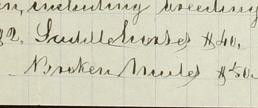 including breeding
92. Saddle horses $40.
Broken Mules $50.